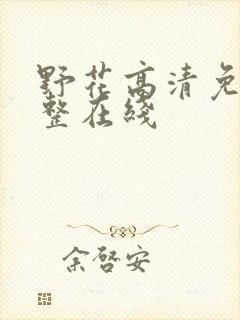 野花高清免
整在线
余啓安